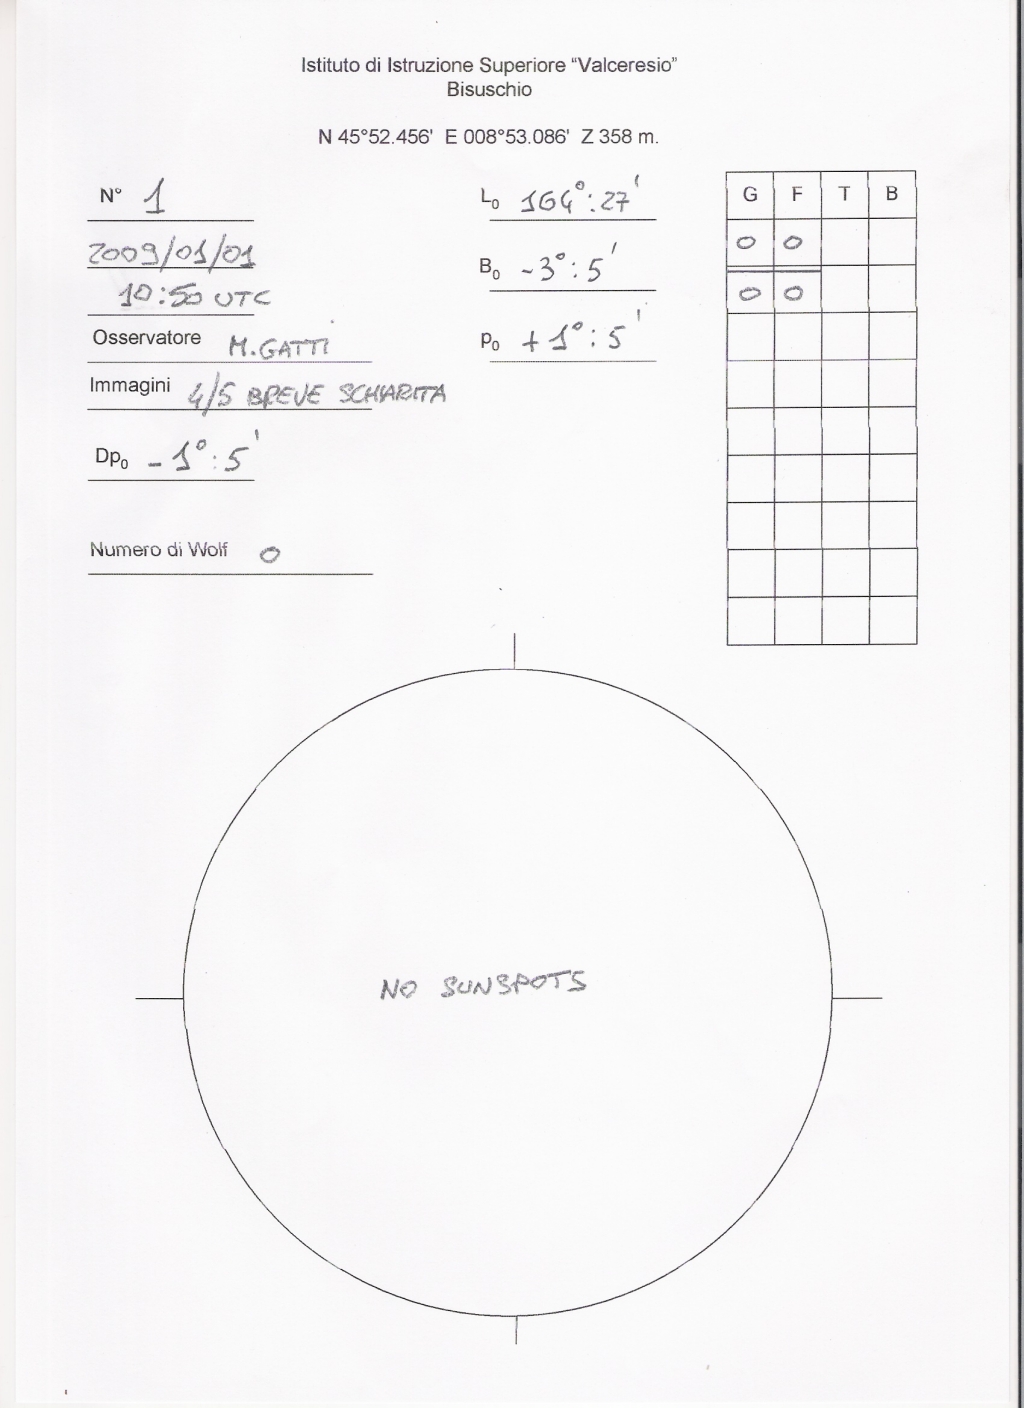 Istituto di Istruzione Superiore “Valceresio”
Bisuschio
N 45°52.456' E 008°53.086' Z 358 m.
N° 1
2009/01/01
10:50 UTC
Osservatore M.GATTI
Immagini 4/5 BREVE SCHIARITA
Dp0 -1°:5'
Numero di Wolf 0
L0 164°:27'
B0 -3°:5'
p0 +1°:5'
G F T B
0 0
0 0
NO SUNSPOTS